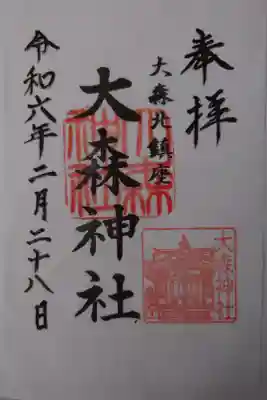 奉拝
大森北鎮座
大森神社
令和六年二月二十八日
大森神社
大森神社